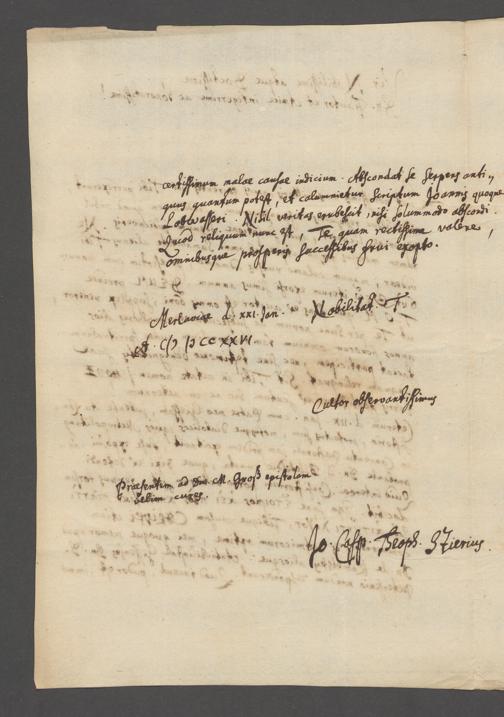 certissimum malae causae indicium. Abscondat se Serpens anti-
quus quantum potest, et calumnietur Scriptum Joannis quoque
Lobwasseri. Nihil veritas erubescit, nisi solummodo abscondi.
Quod reliquum nunc est, Te quam rectissime valere,
omnibusque prosperis successibus frui exopto.
d. XXI. Jan. Nobilitat. T
CIƆ IƆ CC XXVI.
Cultor observantissimus
Praesentem ad Dn. M. Groß epistolam
velim cures.
Jo. Casp. Theoph.